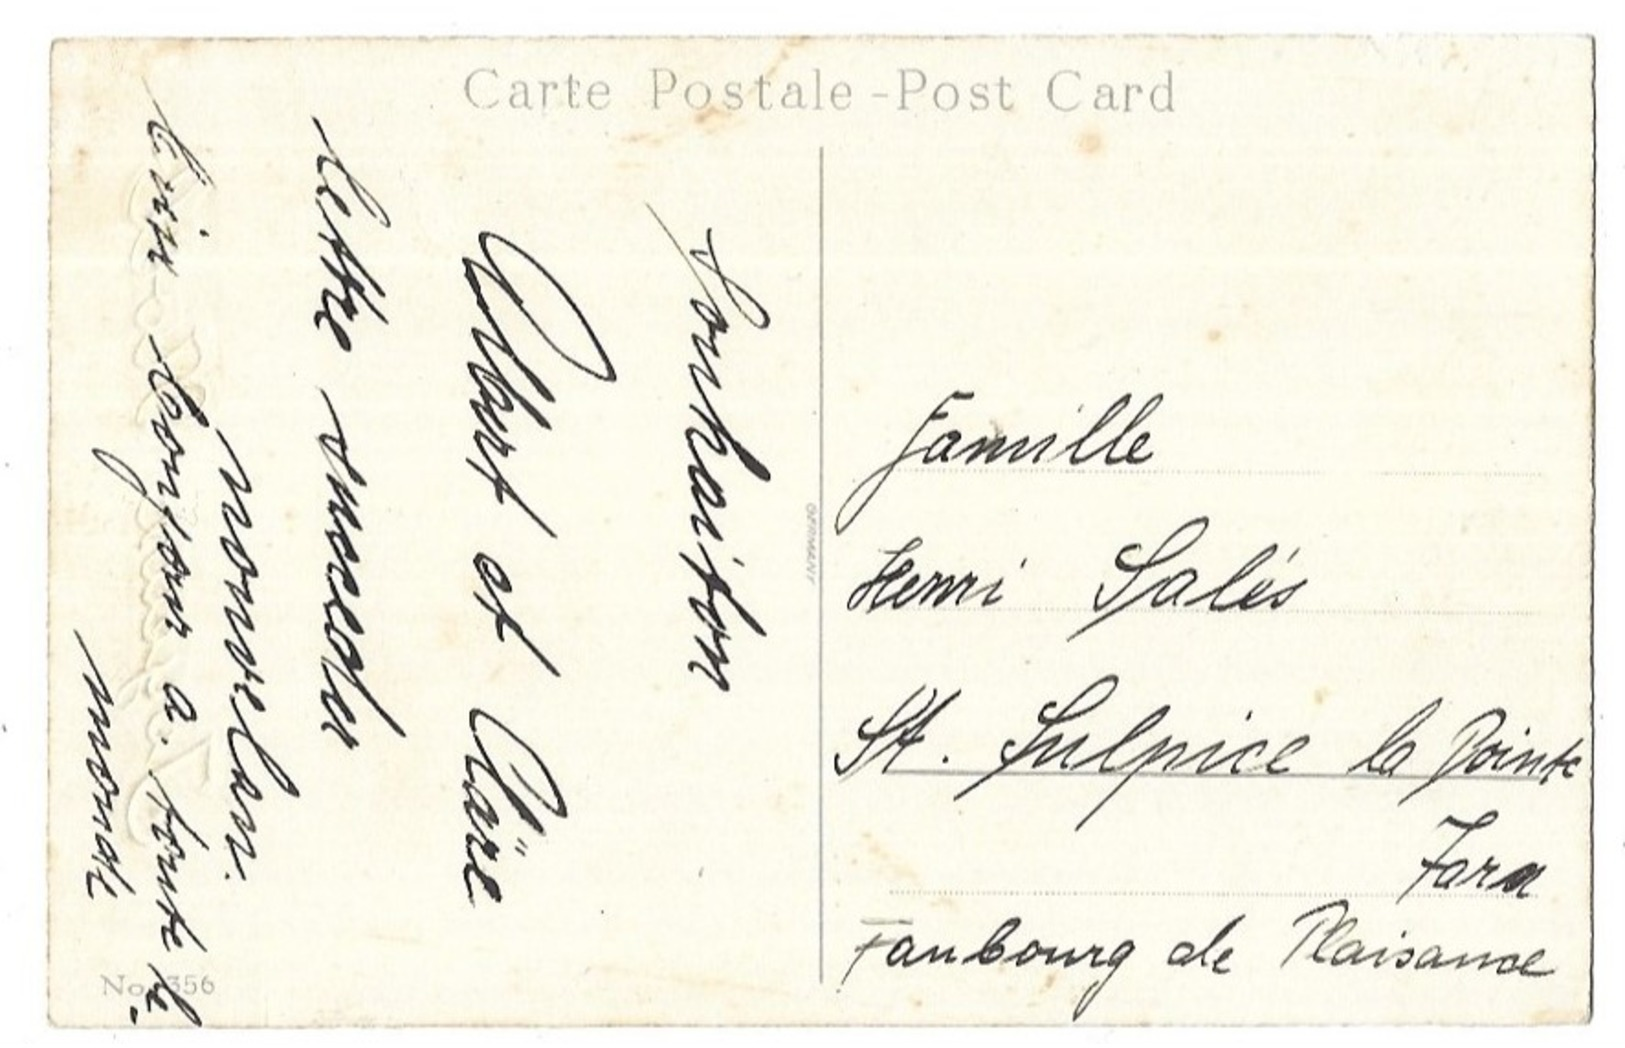 Carte Postale - Post Card
Souhaiton
Albert et Claire
lettre succede
nouvelan.
bonjour a. toute le
monde
GERMANY
Famille
Henri Salés
St. Sulpice la Pointe
Tarn
Faubourg de Plaisance
No 356